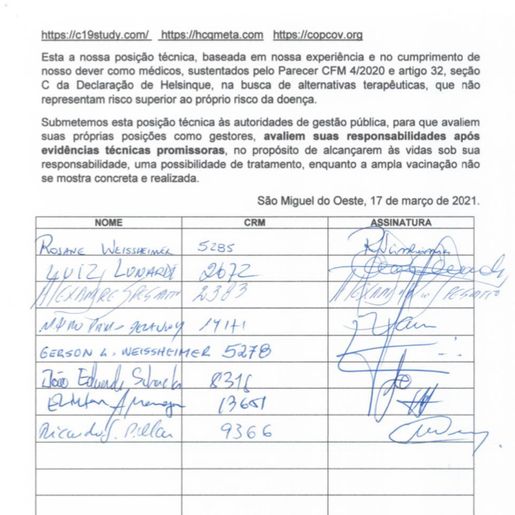 https://c19study.com/ https://hcqmeta.com https://copcov.org
Esta a nossa posição técnica, baseada em nossa experiência e no cumprimento de
nosso dever como médicos, sustentados pelo Parecer CFM 4/2020 e artigo 32, seção
C da Declaração de Helsinque, na busca de alternativas terapêuticas, que não
representam risco superior ao próprio risco da doença.
Submetemos esta posição técnica às autoridades de gestão pública, para que avaliem
suas próprias posições como gestores, avaliem suas responsabilidades após
evidências técnicas promissoras, no propósito de alcançarem às vidas sob sua
responsabilidade, uma possibilidade de tratamento, enquanto a ampla vacinação não
se mostra concreta e realizada.
São Miguel do Oeste, 17 de março de 2021.
NOME CRM ASSINATURA
ROSANE WEISSHEIMER 5285
LUIZ LUNARDI 2672
2383
GERSON L. WEISSHEIMER 5278
João Eduardo 8316
13651
Ricardo S. 9366